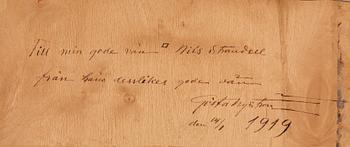 Till min gode vän Nils Strandell
från hans desslikes gode vän
Gösta Nystroem
den 14/1 1919